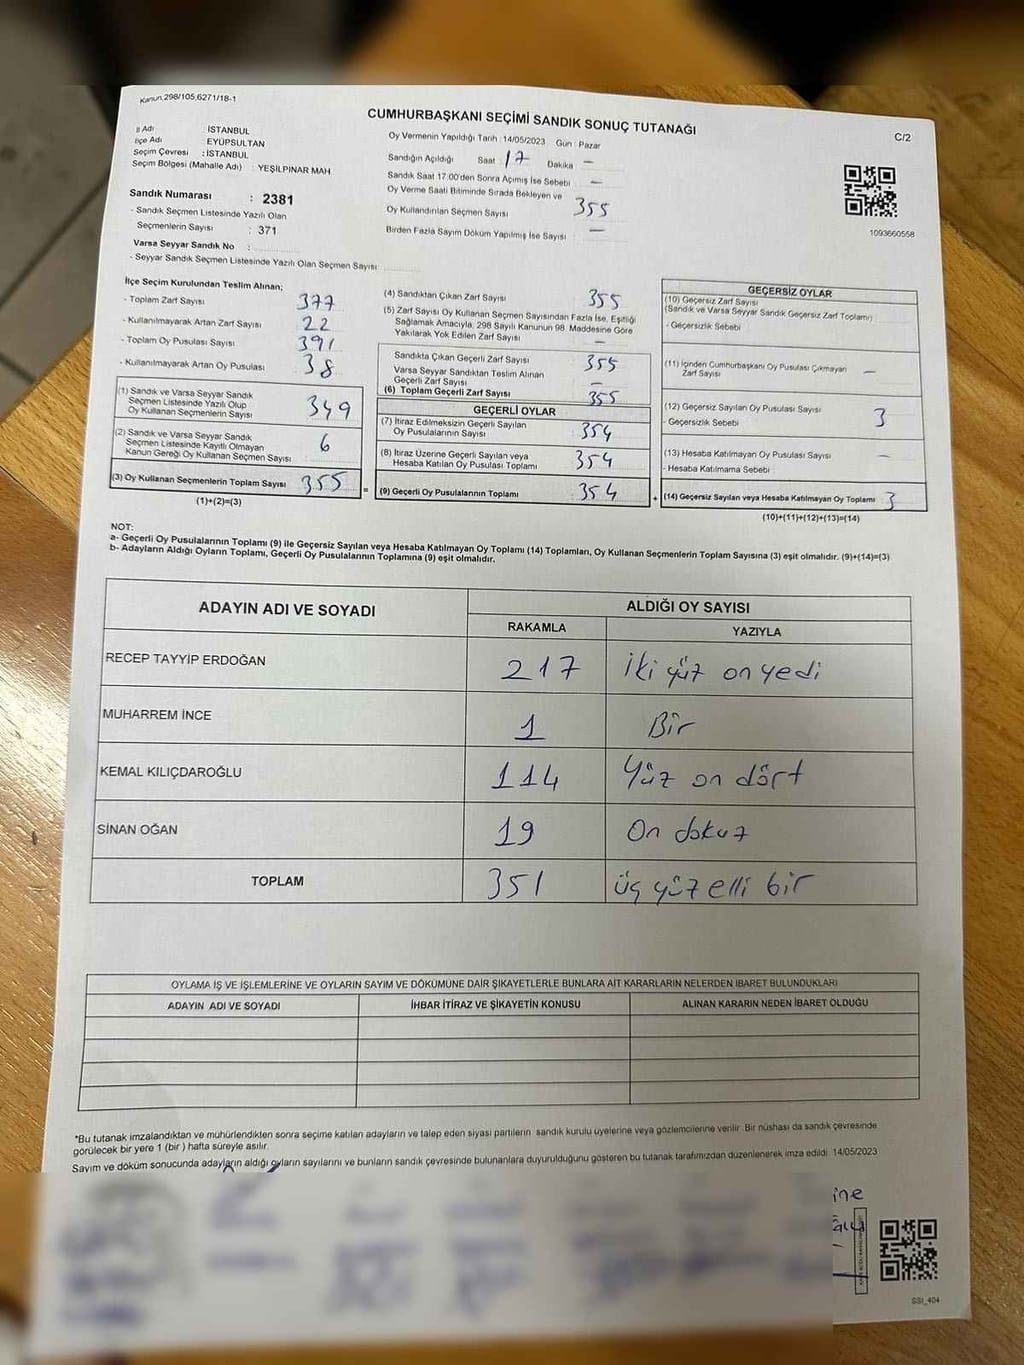 Kanun,298/105,6271/18-1
CUMHURBAŞKANI SEÇİMİ SANDIK SONUÇ TUTANAĞI
C/2
İl Adı : İSTANBUL
İlçe Adı : EYÜPSULTAN
Seçim Çevresi : İSTANBUL
Seçim Bölgesi (Mahalle Adı) : YEŞİLPINAR MAH
Sandık Numarası : 2381
- Sandık Seçmen Listesinde Yazılı Olan
Seçmenlerin Sayısı : 371
Varsa Seyyar Sandık No :
- Seyyar Sandık Seçmen Listesinde Yazılı Olan Seçmen Sayısı
Oy Vermenin Yapıldığı Tarih : 14/05/2023 Gün : Pazar
Sandığın Açıldığı Saat : 17 Dakika : –
Sandık Saat 17:00'den Sonra Açımış İse Sebebi –
Oy Verme Saati Bitiminde Sırada Bekleyen ve
Oy Kullandırılan Seçmen Sayısı 355
Birden Fazla Sayım Döküm Yapılmış İse Sayısı : –
1093660558
İlçe Seçim Kurulundan Teslim Alınan;
- Toplam Zarf Sayısı 377
- Kullanılmayarak Artan Zarf Sayısı 22
- Toplam Oy Pusulası Sayısı 391
- Kullanılmayarak Artan Oy Pusulası 38
(1) Sandık ve Varsa Seyyar Sandık
Seçmen Listesinde Yazılı Olup
Oy Kullanan Seçmenlerin Sayısı 349
(2) Sandık ve Varsa Seyyar Sandık
Seçmen Listesinde Kayıtlı Olmayan
Kanun Gereği Oy Kullanan Seçmen Sayısı 6
(3) Oy Kullanan Seçmenlerin Toplam Sayısı 355
(1)+(2)=(3)
(4) Sandıktan Çıkan Zarf Sayısı 355
(5) Zarf Sayısı Oy Kullanan Seçmen Sayısından Fazla İse, Eşitliği
Sağlamak Amacıyla, 298 Sayılı Kanunun 98. Maddesine Göre
Yakılarak Yok Edilen Zarf Sayısı –
Sandıkta Çıkan Geçerli Zarf Sayısı 355
Varsa Seyyar Sandıktan Teslim Alınan
Geçerli Zarf Sayısı –
(6) Toplam Geçerli Zarf Sayısı 355
GEÇERLİ OYLAR
(7) İtiraz Edilmeksizin Geçerli Sayılan
Oy Pusulalarının Sayısı 354
(8) İtiraz Üzerine Geçerli Sayılan veya
Hesaba Katılan Oy Pusulası Toplamı 354
= (9) Geçerli Oy Pusulalarının Toplamı 354 +
GEÇERSİZ OYLAR
(10) Geçersiz Zarf Sayısı
(Sandık ve Varsa Seyyar Sandık Geçersiz Zarf Toplamı)
- Geçersizlik Sebebi
(11) İçinden Cumhurbaşkanı Oy Pusulası Çıkmayan
Zarf Sayısı –
(12) Geçersiz Sayılan Oy Pusulası Sayısı 3
- Geçersizlik Sebebi
(13) Hesaba Katılmayan Oy Pusulası Sayısı –
- Hesaba Katılmama Sebebi
(14) Geçersiz Sayılan veya Hesaba Katılmayan Oy Toplamı 3
(10)+(11)+(12)+(13)=(14)
NOT:
a- Geçerli Oy Pusulalarının Toplamı (9) ile Geçersiz Sayılan veya Hesaba Katılmayan Oy Toplamı (14) Toplamları, Oy Kullanan Seçmenlerin Toplam Sayısına (3) eşit olmalıdır. (9)+(14)=(3)
b- Adayların Aldığı Oyların Toplamı, Geçerli Oy Pusulalarının Toplamına (9) eşit olmalıdır.
ADAYIN ADI VE SOYADI
ALDIĞI OY SAYISI
RAKAMLA YAZIYLA
RECEP TAYYİP ERDOĞAN 217 iki yüz on yedi
MUHARREM İNCE 1 Bir
KEMAL KILIÇDAROĞLU 114 Yüz on dört
SİNAN OĞAN 19 On dokuz
TOPLAM 351 üç yüz elli bir
OYLAMA İŞ VE İŞLEMLERİNE VE OYLARIN SAYIM VE DÖKÜMÜNE DAİR ŞİKAYETLERLE BUNLARA AİT KARARLARIN NELERDEN İBARET BULUNDUKLARI
ADAYIN ADI VE SOYADI İHBAR İTİRAZ VE ŞİKAYETİN KONUSU ALINAN KARARIN NEDEN İBARET OLDUĞU
*Bu tutanak imzalandıktan ve mühürlendikten sonra seçime katılan adayların ve talep eden siyasi partilerin sandık kurulu üyelerine veya gözlemcilerine verilir. Bir nüshası da sandık çevresinde
görülecek bir yere 1 (bir) hafta süreyle asılır.
Sayım ve döküm sonucunda adayların aldığı oyların sayılarını ve bunların sandık çevresinde bulunanlara duyurulduğunu gösteren bu tutanak tarafımızdan düzenlenerek imza edildi. 14/05/2023
SSI_404